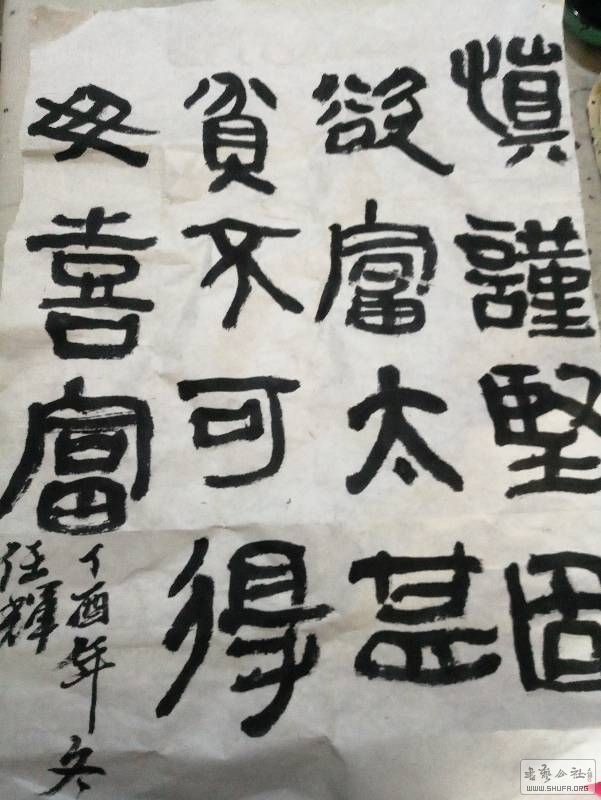 慎謹堅固
欲富太甚
貧不可得
毋喜富
丁酉年冬
任輝
書藝公社
WWW.SHUFA.ORG